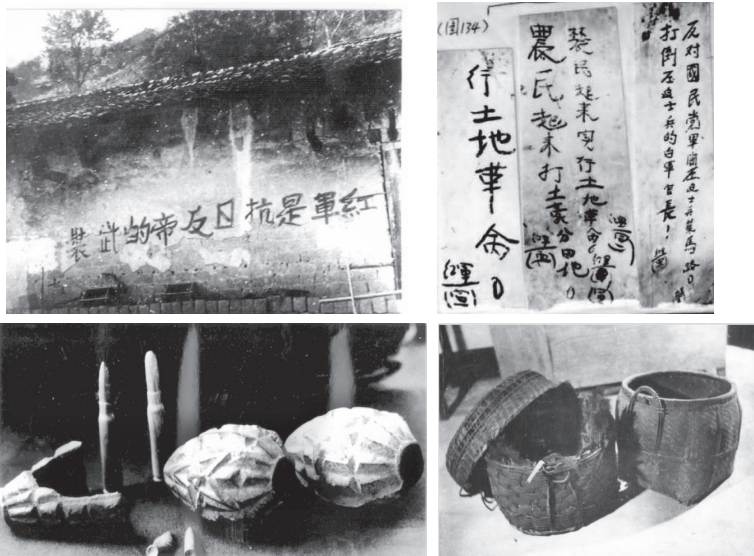 紅軍是抗日反帝的武裝
(图134)
反对國民党軍压迫士兵馬路
打倒压迫士兵的白軍官長！
農民起来实行土地革命
農民起来打土豪分田地
行土地革命